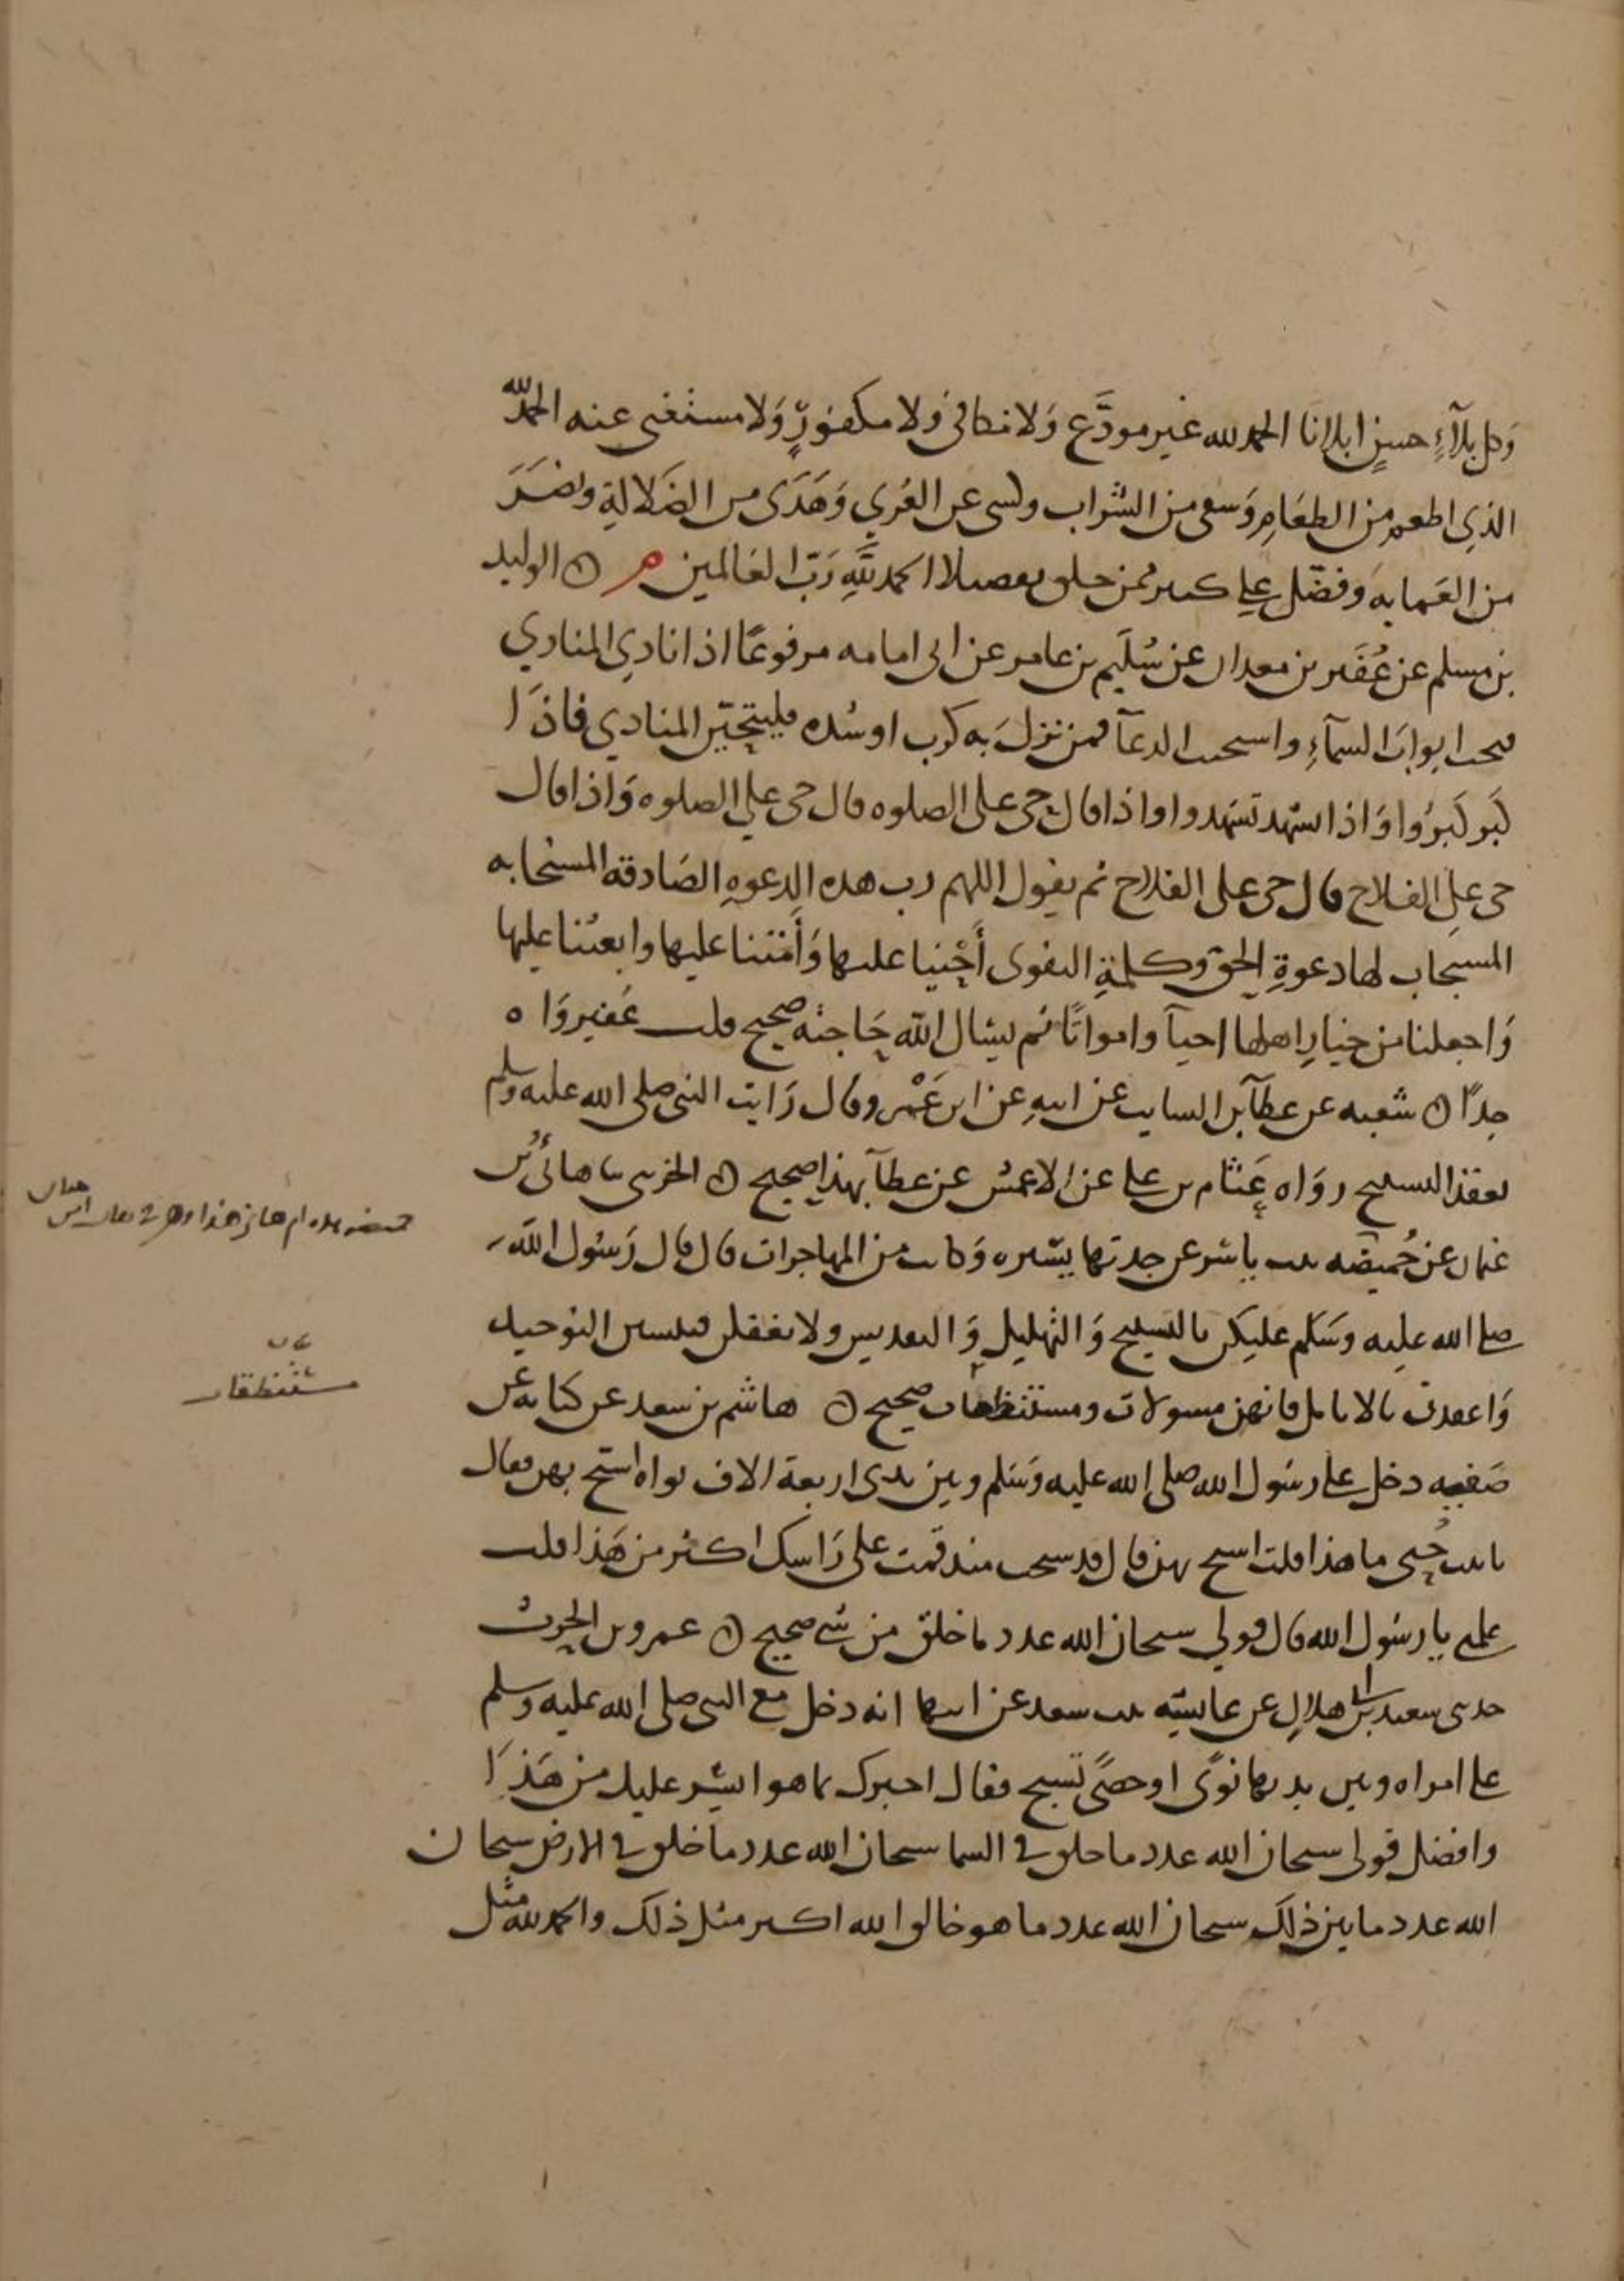 وكل بلاءٍ حسنٍ ابلانا الحمد لله غير مودَّع وَلا مكافى ولا مكفورٍ وَلا مستغنى عنه الحمد لله
الذي اطعم من الطعَامِ وَسقى من الشراب وكسى عن العُري وَهَدَى من الضلالةِ وبصَّرَ
من العَمايه وفضّل على كثير ممن خلق تفضيلا الحمد للهِ رَبّ العَالمين ه الوليد
بن مسلم عن عُفَير بن معدان عن سُلَيم بن عامر عن ابى امامه مرفوعًا اذا نادي المنادي
فتحت ابوابَ السمآءِ واستجيب الدعآ فمن نزلَ به كرب او شده فليتحيّن المنادي فاذَا
كَبّر كَبّرُوا وَاذا تشهد تشهدوا واذا قال حى على الصلوه قال حى على الصلوه وَاذا قال
حى على الفلاح قال حى على الفلاح ثم يقول اللهم رب هذه الدعوهِ الصَادقه المستجابه
المستجاب لها دعوةِ الحق وكلمةِ التقوى أَحْينا عليها وَأَمتنا عليها وابعثنا عليها
وَاجعلنا من خيارِ اهلها احيآ وامواتًا ثم يسال الله حَاجته صحيح قلت عُفير وَاه
جدًا ه شعبه عن عطآ بن السايب عن ابيهِ عن ابن عَمْرو قال رَايت النبى صلى الله عليه وسلم
يعقد التسبيح رواه عَثّام بن على عن الاعمش عن عطآ بهذا صحيح ه الخريبى نا هانئ بُن
عثمان عن حُميضه بنت ياسر عن جدتها يسَيره وَكانت من المهاجرات قال قال رَسُول الله
صلى الله عليه وسَلم عليكن بالتسبيح وَالتهليل وَالتقديس ولا تغفلن فتنسين التوحيد
وَاعقدن بالانامل فانهن مسولات ومستنطقات صحيح ه هاشم بن سعيد عن كنانه عن
صَفيه دخل على رسُول الله صلى الله عليه وَسَلم وبين يدى اربعة الاف نواه اسبح بهن فقال
يابنت حُيى ما هذا قلت اسبح بهن قال قد سبحت منذ قمت على رَاسك اكثر من هَذا قلت
علمنى يا رسُول الله قال قولي سبحان الله عدد ما خلق من شى صحيح ه عمرو بن الحرث
حدثنى سعيد بن ابى هلالٍ عن عايشه بنت سعد عن ابيها انه دخل مع النبى صلى الله عليه وسلم
على امراه وبين يديها نوًى او حصًى تسبح فقال اخبرك بما هو ايسر عليك من هَذَا
وافضل قولى سبحان الله عدد ما خلق فى السما سبحان الله عدد ما خلق فى الارض سبحان
الله عدد ما بين ذلك سبحان الله عدد ما هو خالق والله اكبر مثل ذلك والحمد لله مثل
مستنطقات